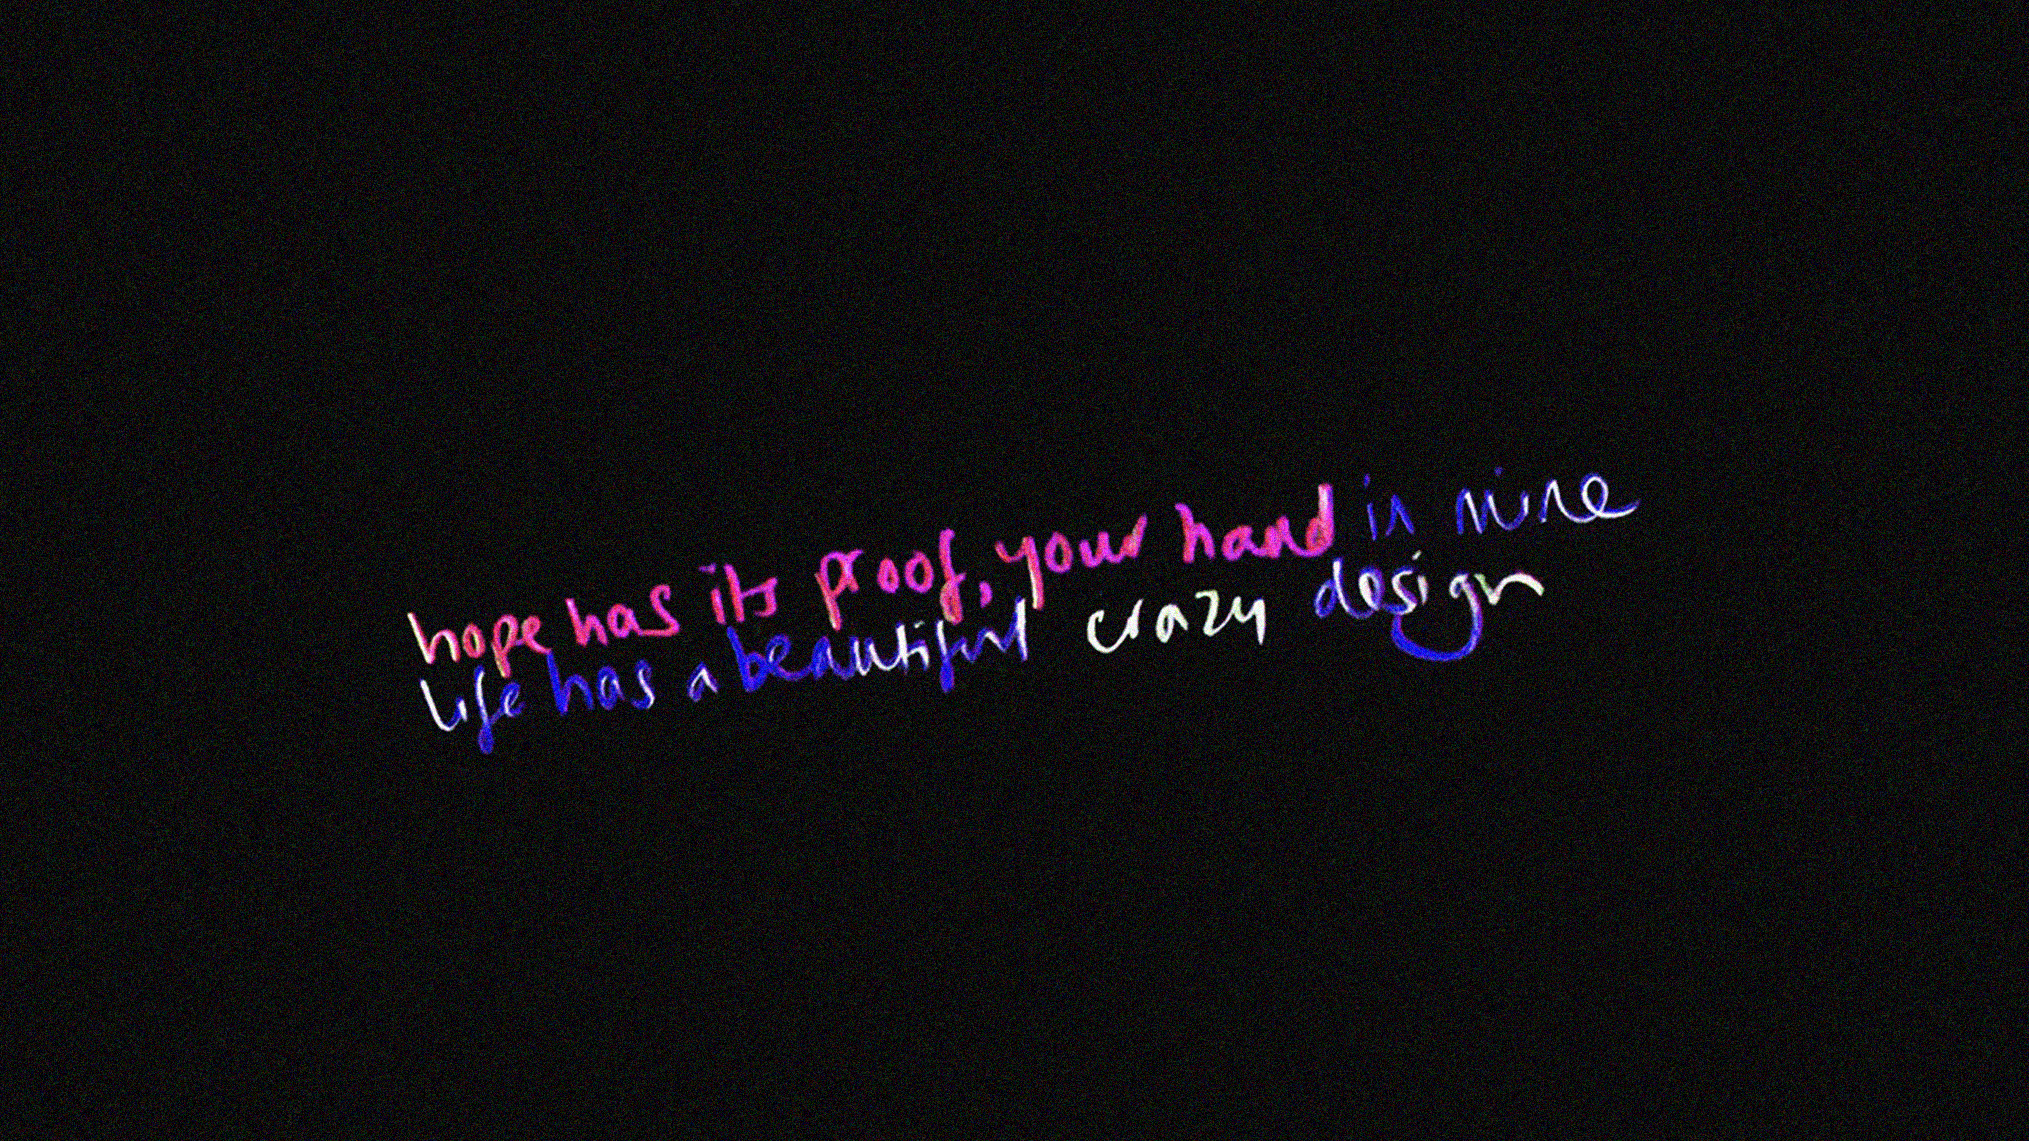 hope has its proof, your hand in mine
life has a beautiful crazy design